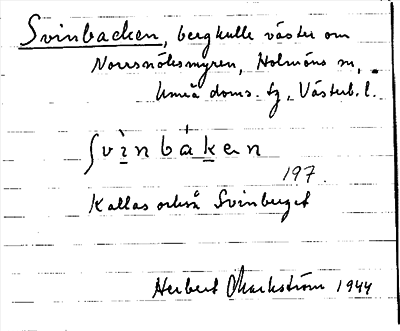 Svinbacken, bergkulle väster om
Norrsnölesmyren, Holmöns sn,
Umeå doms. tg, Västerb. l.
svìnbáken
197.
Kallas också Svinberget
Herbert Markström 1944